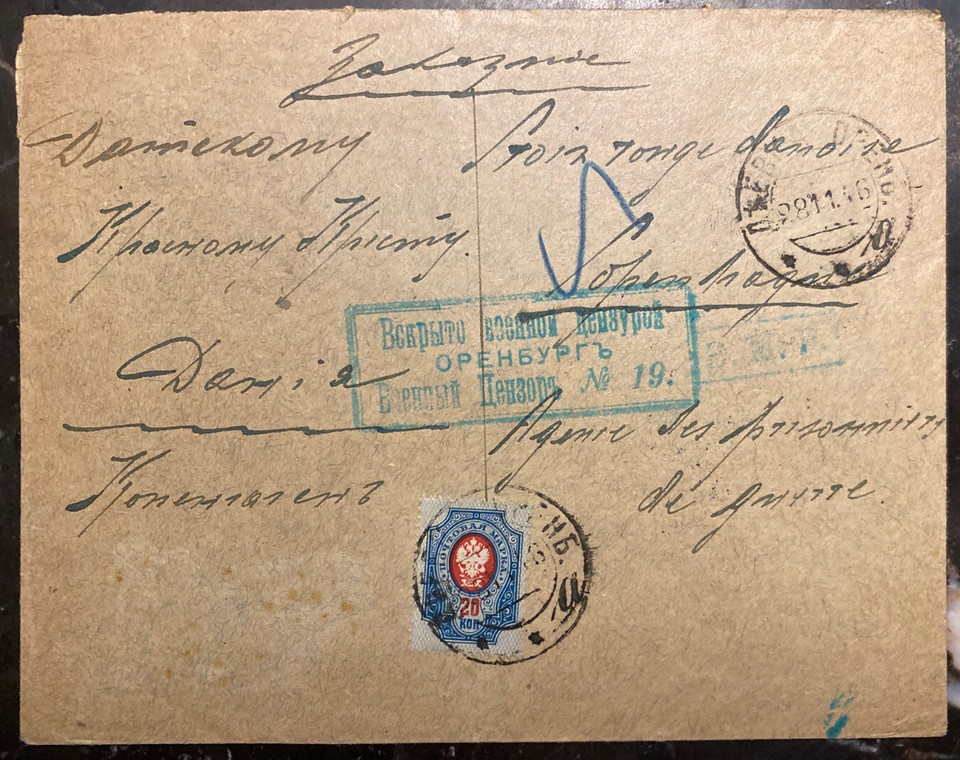 Заказное
Датскому
Красному Кресту.
Данiя
Копенгагенъ
Croix rouge danoise
Copenhague
Agence des prisonniers
de guerre.
28 11 16
Вскрыто военной цензурой
ОРЕНБУРГЪ
Военный Цензоръ № 19.
ПОЧТОВАЯ МАРКА
20
КОП